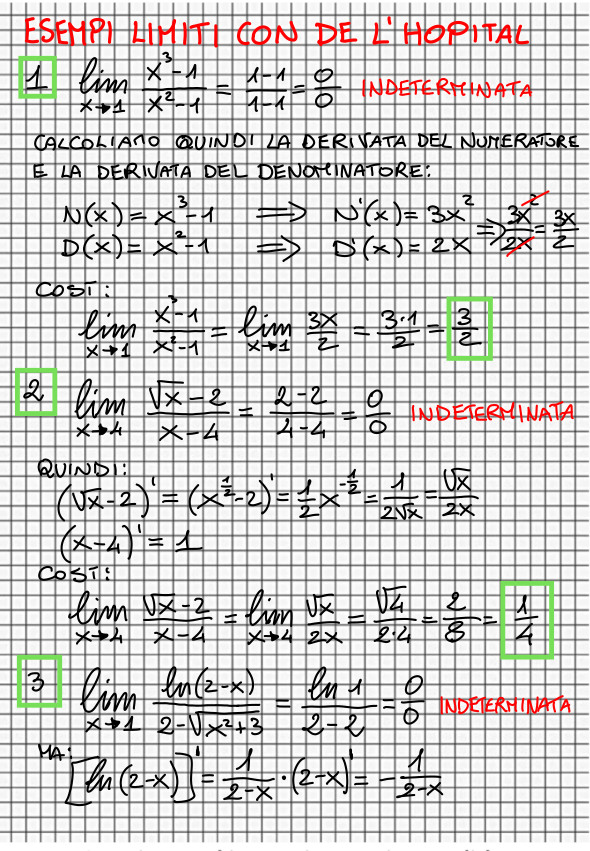 ESEMPI LIMITI CON DE L'HOPITAL
1 lim x→1 (x³-1)/(x²-1) = (1-1)/(1-1) = 0/0 INDETERMINATA
CALCOLIAMO QUINDI LA DERIVATA DEL NUMERATORE
E LA DERIVATA DEL DENOMINATORE:
N(x) = x³-1 ⟹ N'(x) = 3x² ⟹ 3x²/2x = 3x/2
D(x) = x²-1 ⟹ D'(x) = 2x
COSÌ:
lim x→1 (x³-1)/(x²-1) = lim x→1 3x/2 = 3·1/2 = 3/2
2 lim x→4 (√x-2)/(x-4) = (2-2)/(4-4) = 0/0 INDETERMINATA
QUINDI:
(√x-2)' = (x^(1/2)-2)' = 1/2 x^(-1/2) = 1/(2√x) = √x/2x
(x-4)' = 1
COSÌ:
lim x→4 (√x-2)/(x-4) = lim x→4 √x/2x = √4/(2·4) = 2/8 = 1/4
3 lim x→1 ln(2-x)/(2-√(x²+3)) = ln 1/(2-2) = 0/0 INDETERMINATA
MA:
[ln(2-x)]' = 1/(2-x) · (2-x)' = - 1/(2-x)